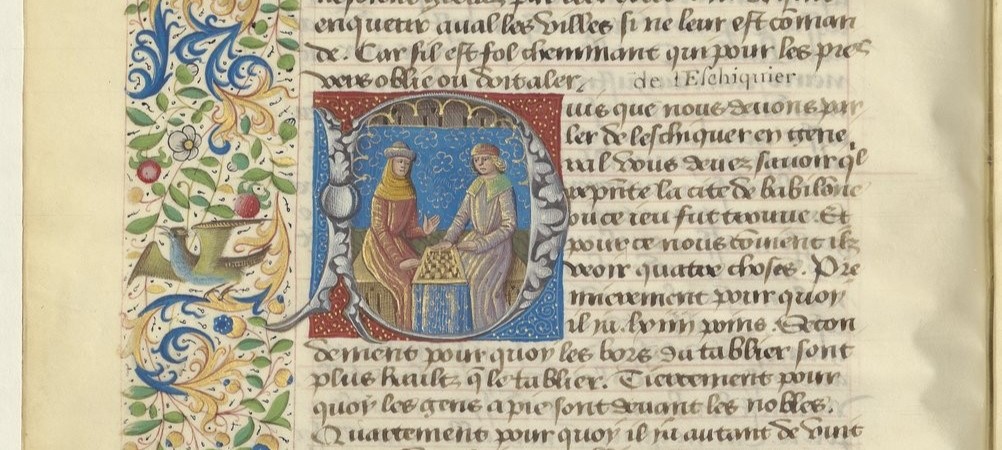 enquerir aual les villes si ne leur est cōman
de. Car sil est fol cheminant qui pour les prez
vers oblie ou doit aler.
de l'Eschiquier
Puis que nous deuons par
ler de leschiquier en gene
ral vous deuez sauoir q̄l
repn̄te la cite de babilōne
ou ce ieu fut trouue. Et
pour ce nous cōuient icy
veoir quatre choses. Pre
mierement pour quoy
il ja .lxiiij poins. Secon
dement pour quoy les bors du tablier sont
plus haultz q̄ le tablier. Tiercement pour
quoy les gens a pie sont deuant les nobles.
Quartement pour quoy il ja autant de vuit